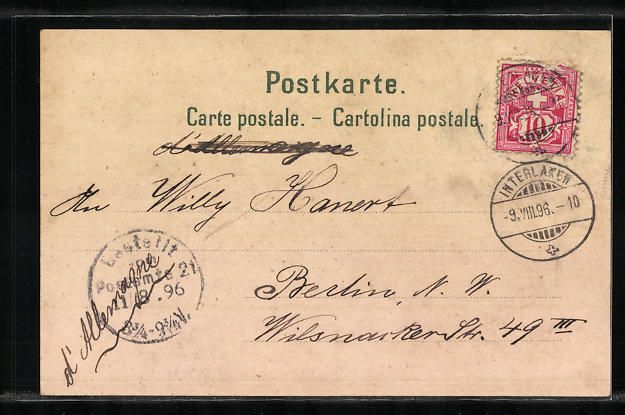 Postkarte.
Carte postale. – Cartolina postale.
d'Allemagne
HELVETIA
10
INTERLAKEN
-9.VIII.96.-10
An Willy Hanert
Bestellt
vom
Postamte 21
11/8.96
8¾-9¾N.
d'Allemagne
Berlin, N. W.
Wilsnacker Str. 49 III